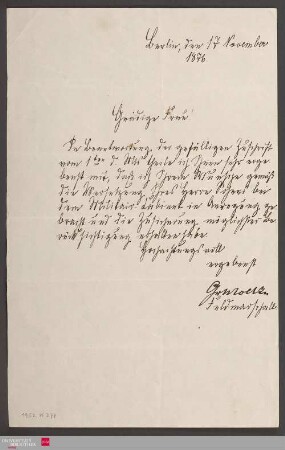 Berlin, den 17 November
1876
Gnädige Frau
In Beantwortung der gefälligen Zuschrift
vom 1ten d. Mts theile ich Ihnen sehr erge
benst mit, daß ich Ihrem Wunsche gemäß
die Versetzung Ihres Herrn Sohnes bei
dem Militair Cabinet in Anregung ge
bracht und die Zusicherung möglichster Be
rücksichtigung erhalten habe.
Hochachtungsvoll
ergebenst
Gr Moltke
Feldmarschall